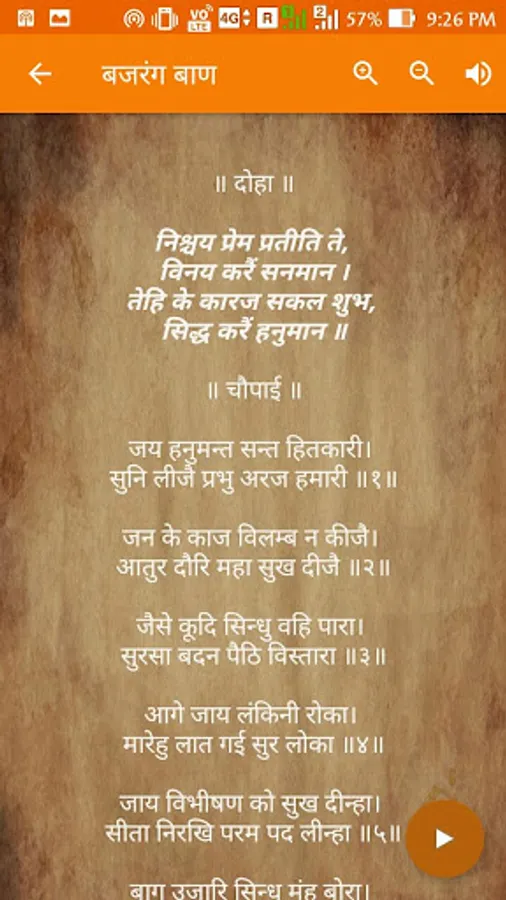 VO LTE 4G R 1 2 57% 9:26 PM
बजरंग बाण
॥ दोहा ॥
निश्चय प्रेम प्रतीति ते,
विनय करैं सनमान ।
तेहि के कारज सकल शुभ,
सिद्ध करैं हनुमान ॥
॥ चौपाई ॥
जय हनुमन्त सन्त हितकारी।
सुनि लीजै प्रभु अरज हमारी ॥१॥
जन के काज विलम्ब न कीजै।
आतुर दौरि महा सुख दीजै ॥२॥
जैसे कूदि सिन्धु वहि पारा।
सुरसा बदन पैठि विस्तारा ॥३॥
आगे जाय लंकिनी रोका।
मारेहु लात गई सुर लोका ॥४॥
जाय विभीषण को सुख दीन्हा।
सीता निरखि परम पद लीन्हा ॥५॥
बाग उजारि सिन्धु मंह बोरा।